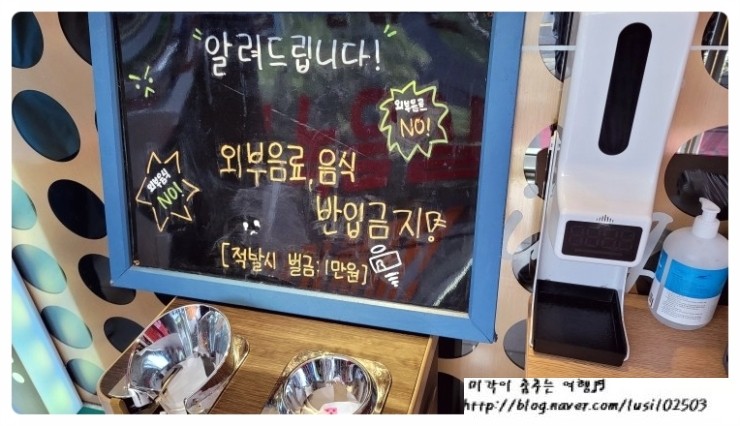 "알려드립니다!"
외부음료
NO!
외부음식
NO!
외부음료, 음식
반입금지
[적발시 벌금:1만원]
미각이 춤추는 여행♬
http://blog.naver.com/lusil02503